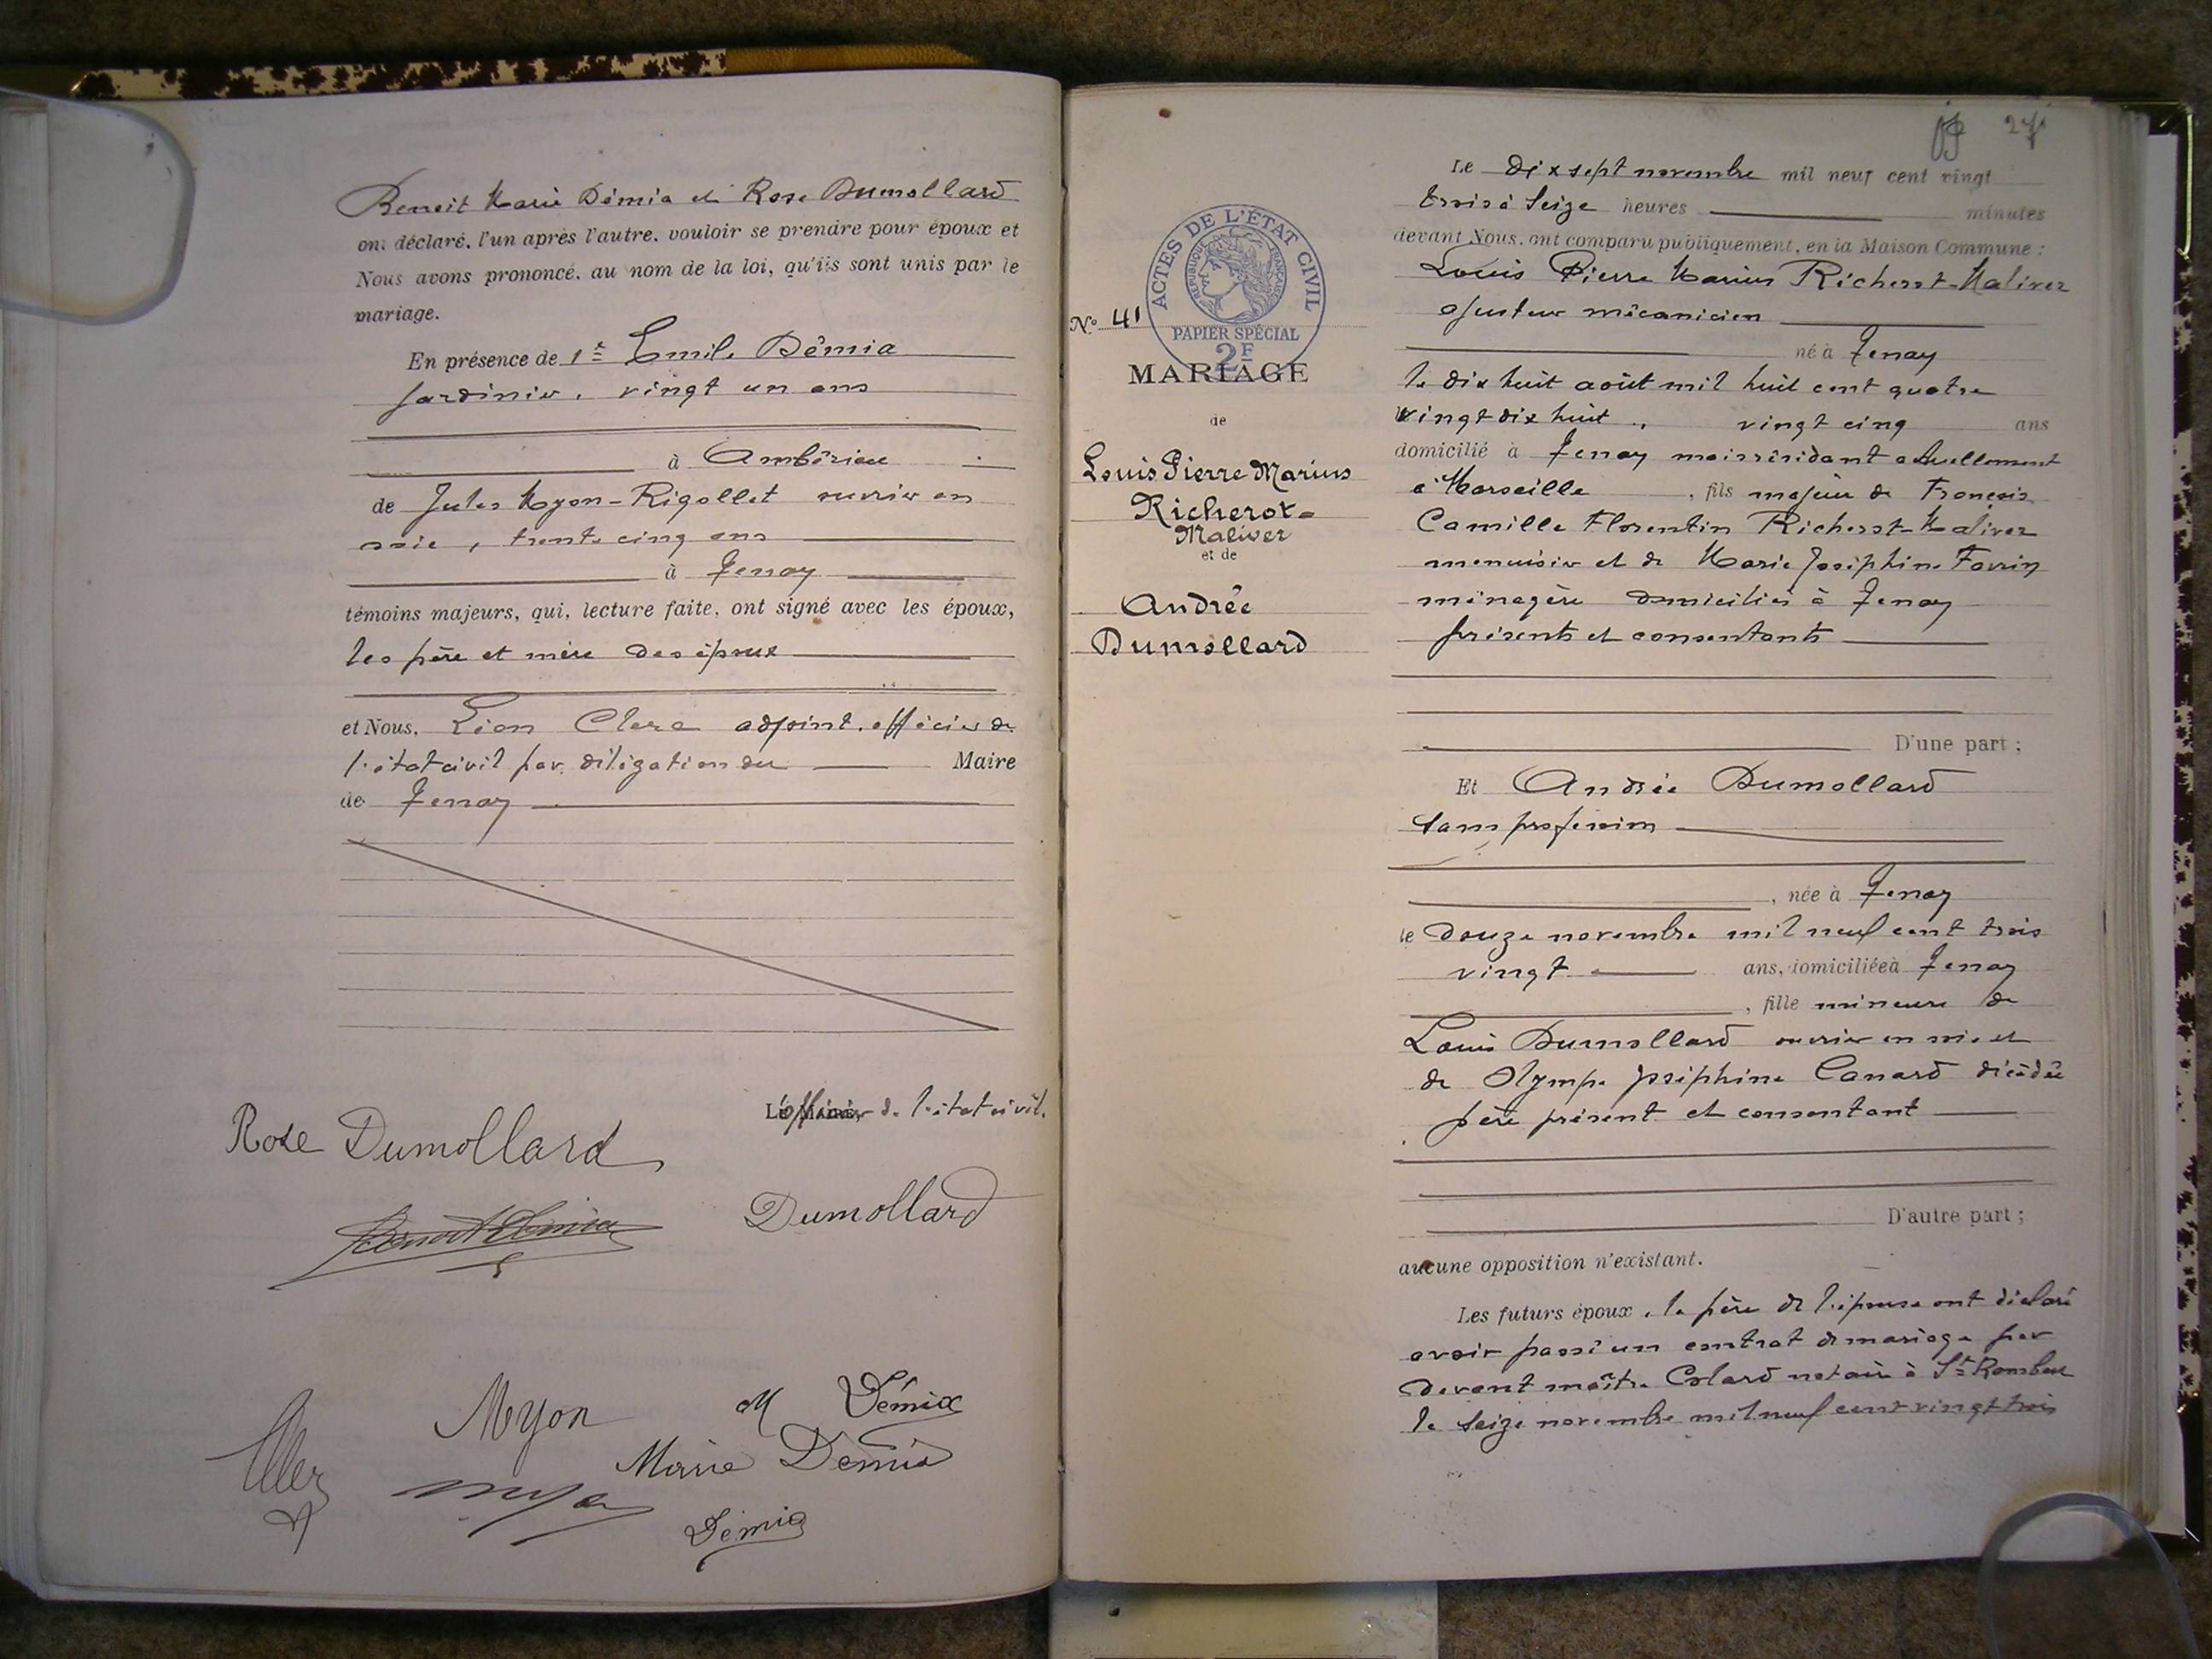 Benoit Marie Démia et Rose Dumollard
ont déclaré, l'un après l'autre, vouloir se prendre pour époux et
Nous avons prononcé, au nom de la loi, qu'ils sont unis par le
mariage.
En présence de 1° Emile Démia
jardinier, vingt un ans
à Ambérieu
de Jules Myon-Rigollet ouvrier en
soie, trente cinq ans
à Tenay
témoins majeurs, qui, lecture faite, ont signé avec les époux,
les père et mère des époux
et Nous, Léon Clerc adjoint, officier de
l'état civil par délégation du Maire
de Tenay
L'officier de l'état civil.
Rose Dumollard
Dumollard
Benoit Démia
Myon
M Démia
Marie Démia
Démia
27
Le dix sept novembre mil neuf cent vingt
trois à seize heures minutes
devant Nous, ont comparu publiquement, en la Maison Commune :
Louis Pierre Marius Richerot-Maliver
ajusteur mécanicien
né à Tenay
le dix huit août mil huit cent quatre
vingt dix huit, vingt cinq ans
domicilié à Tenay mais résidant actuellement
à Marseille, fils majeur de François
Camille Florentin Richerot-Maliver
menuisier et de Marie Joséphine Favrin
ménagère domiciliés à Tenay
présents et consentants
D'une part ;
Et Andrée Dumollard
sans profession
, née à Tenay
le douze novembre mil neuf cent trois
vingt ans, domiciliée à Tenay
, fille mineure de
Louis Dumollard ouvrier en soie et
de Olympe Joséphine Canard décédée
père présent et consentant
D'autre part ;
aucune opposition n'existant.
Les futurs époux, le père de l'épouse ont déclaré
avoir passé un contrat de mariage par
devant maître Colard notaire à St Rambert
le seize novembre mil neuf cent vingt trois
ACTES DE L'ÉTAT CIVIL
RÉPUBLIQUE FRANÇAISE
PAPIER SPÉCIAL
2F
N° 41
MARIAGE
de
Louis Pierre Marius
Richerot-
Maliver
et de
Andrée
Dumollard